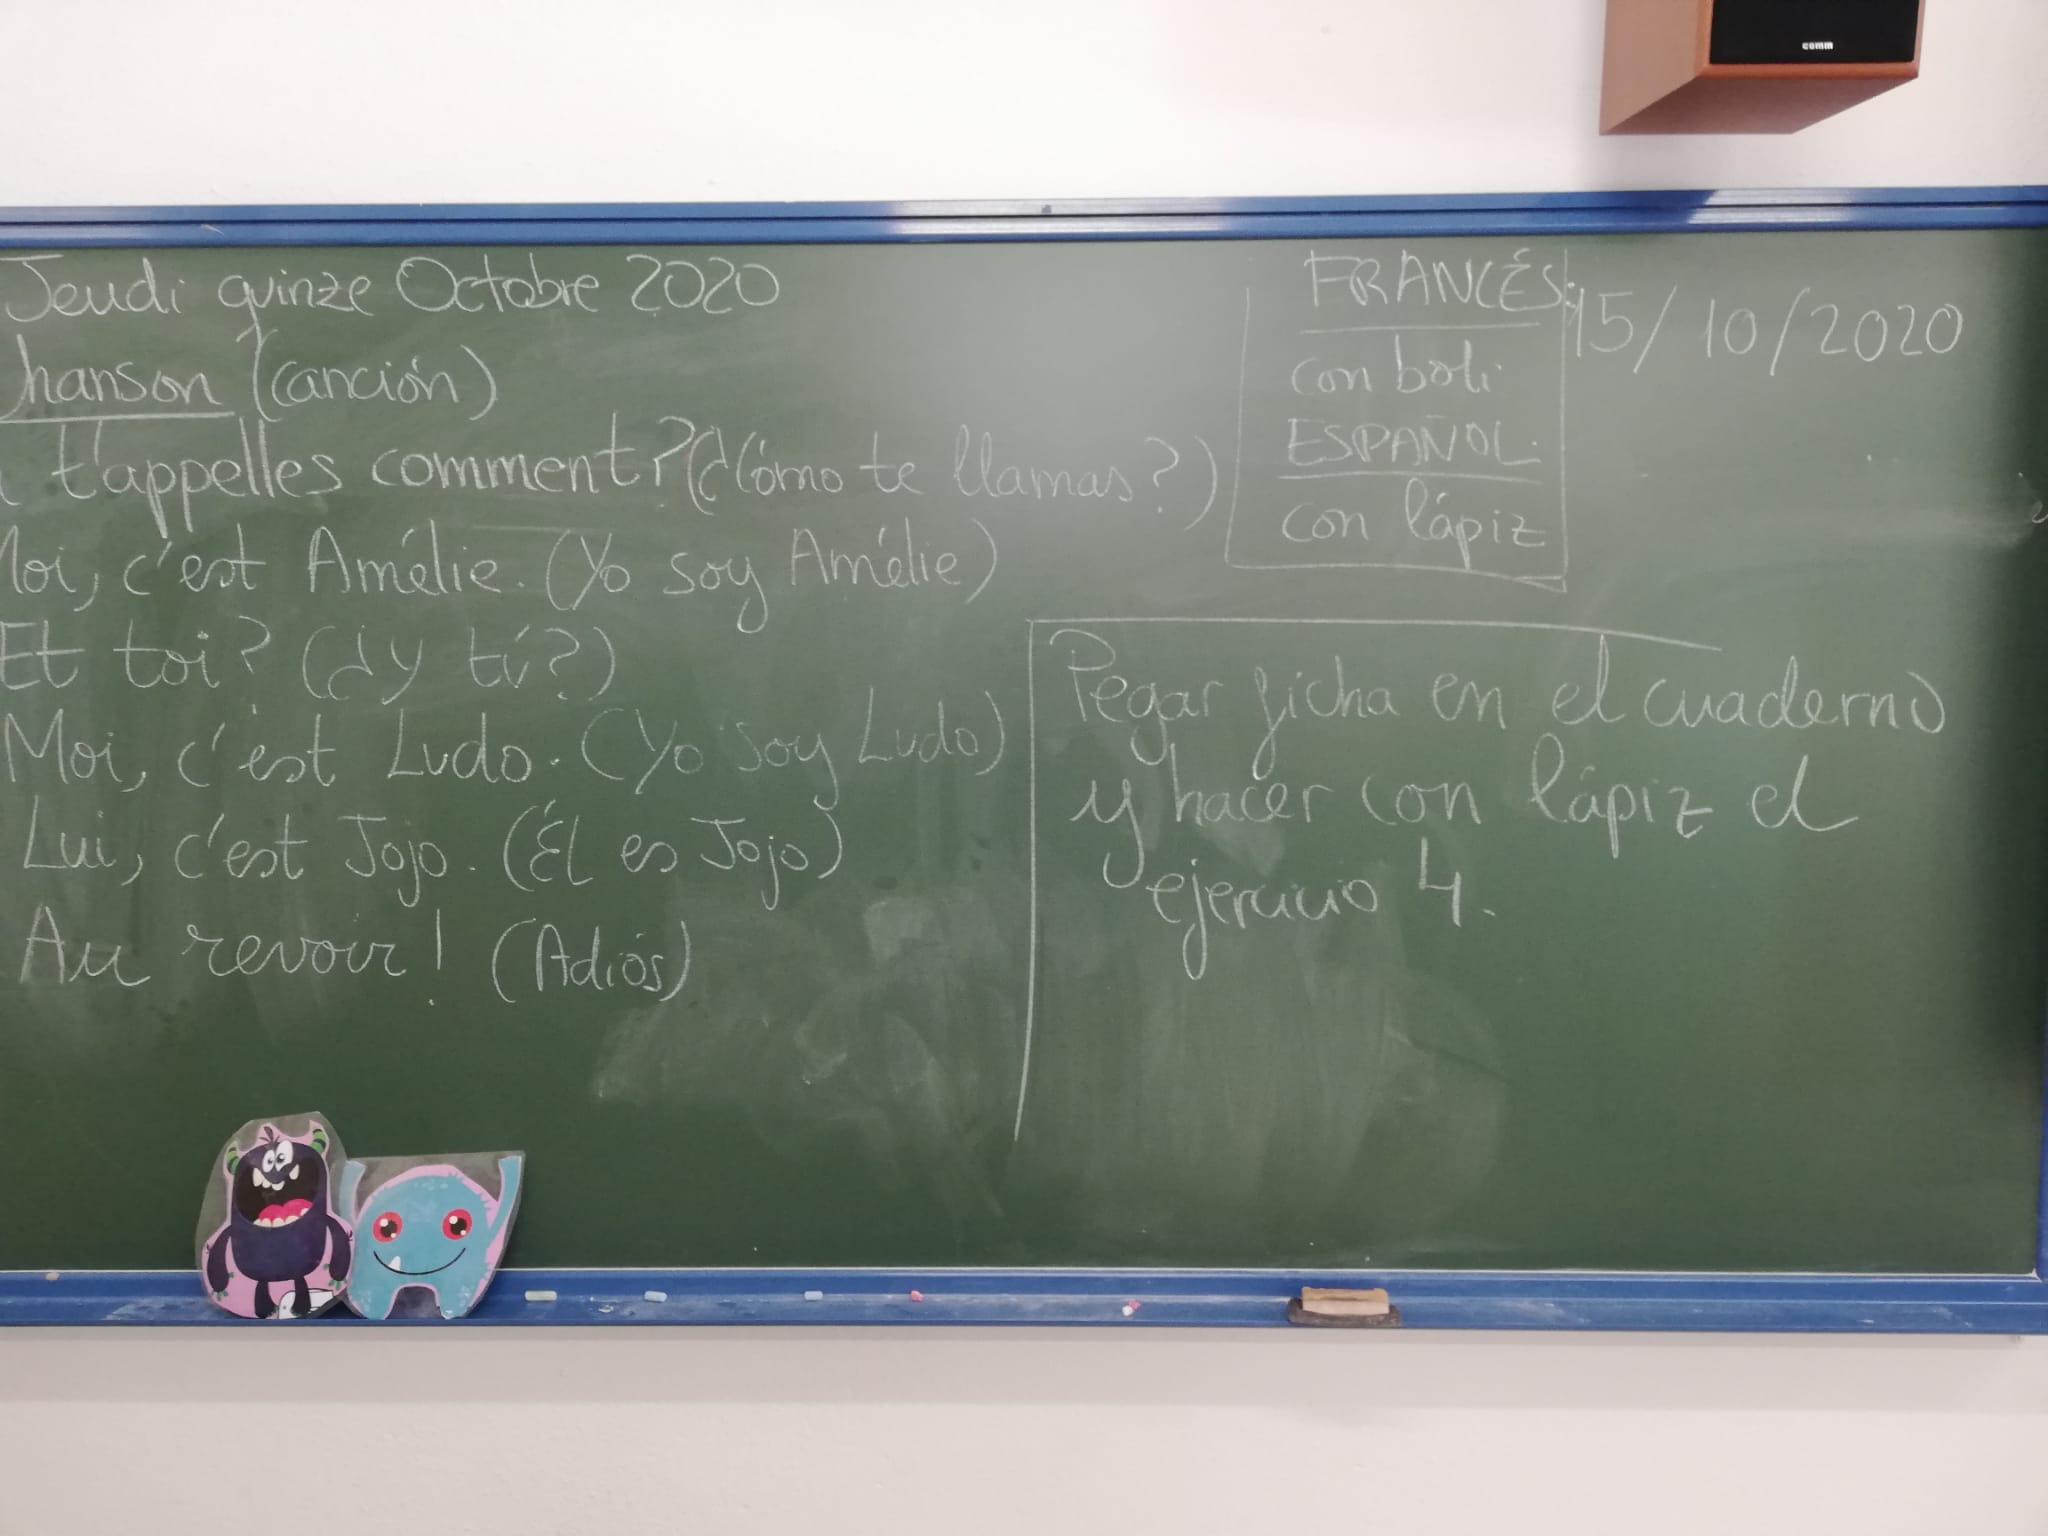 comm
Jeudi quinze Octobre 2020
hanson (canción)
t'appelles comment? (¿Cómo te llamas?)
Moi, c'est Amélie. (Yo soy Amélie)
Et toi? (¿Y tú?)
Moi, c'est Ludo. (Yo soy Ludo)
Lui, c'est Jojo. (Él es Jojo)
Au revoir! (Adiós)
FRANCÉS:
con boli
ESPAÑOL.
con lápiz
15/10/2020
Pegar ficha en el cuaderno
y hacer con lápiz el
ejercicio 4.